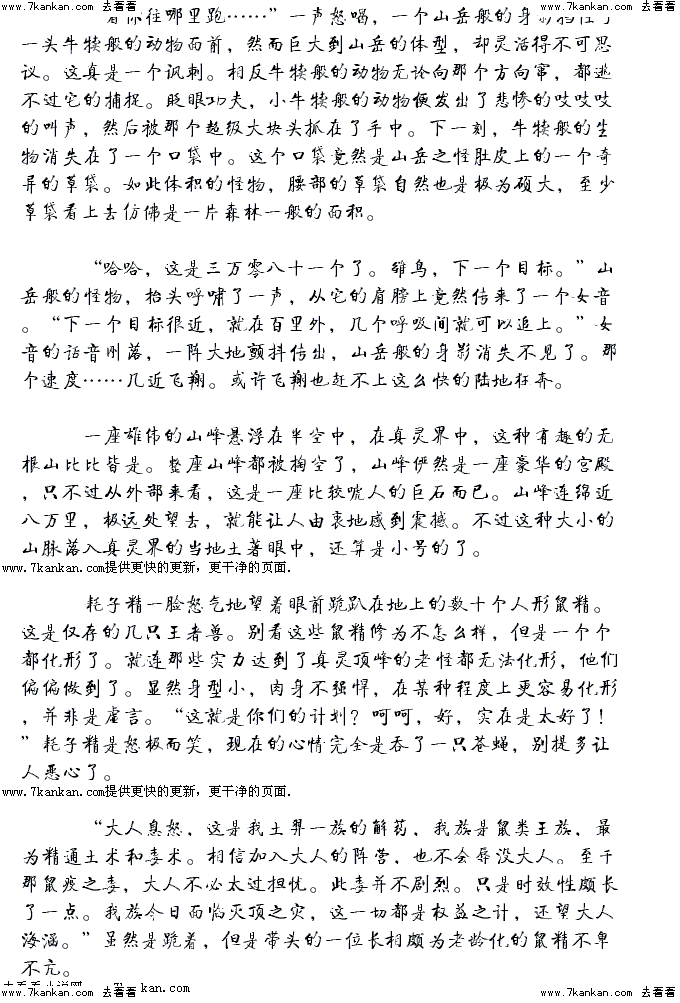 www.7kankan.com 去看看 www.7kankan.com 去看看
看你往哪里跑……”一声怒喝，一个山岳般的身影挡住了
一头牛犊般的动物面前，然而巨大到山岳的体型，却灵活得不可思
议。这真是一个讽刺。相反牛犊般的动物无论向那个方向窜，都逃
不过它的捕捉。眨眼功夫，小牛犊般的动物便发出了悲惨的吱吱吱
的叫声，然后被那个超级大块头抓在了手中。下一刻，牛犊般的生
物消失在了一个口袋中。这个口袋竟然是山岳之怪肚皮上的一个奇
异的草袋。如此体积的怪物，腰部的草袋自然也是极为硕大，至少
草袋看上去仿佛是一片森林一般的面积。
“哈哈，这是三万零八十一个了。雏鸟，下一个目标。”山
岳般的怪物，抬头呼啸了一声，从它的肩膀上竟然传来了一个女音
。“下一个目标很近，就在百里外，几个呼吸间就可以追上。”女
音的话音刚落，一阵大地颤抖传出，山岳般的身影消失不见了。那
个速度……几近飞翔。或许飞翔也赶不上这么快的陆地狂奔。
一座雄伟的山峰悬浮在半空中，在真灵界中，这种有趣的无
根山比比皆是。整座山峰都被掏空了，山峰俨然是一座豪华的宫殿
，只不过从外部来看，这是一座比较唬人的巨石而已。山峰连绵近
八万里，极远处望去，就能让人由衷地感到震撼。不过这种大小的
山脉落入真灵界的当地土著眼中，还算是小号的了。
www.7kankan.com提供更快的更新，更干净的页面.
耗子精一脸怒气地望着眼前跪趴在地上的数十个人形鼠精。
这是仅存的几只王者兽。别看这些鼠精修为不怎么样，但是一个个
都化形了。就连那些实力达到了真灵顶峰的老怪都无法化形，他们
偏偏做到了。显然身型小，肉身不强悍，在某种程度上更容易化形
，并非是虚言。“这就是你们的计划？呵呵，好，实在是太好了！
”耗子精是怒极而笑，现在的心情完全是吞了一只苍蝇，别提多让
人恶心了。
www.7kankan.com提供更快的更新，更干净的页面.
“大人息怒，这是我土羿一族的解药，我族是鼠类王族，最
为精通土术和毒术。相信加入大人的阵营，也不会辱没大人。至于
那鼠疫之毒，大人不必太过担忧。此毒并不剧烈。只是时效性颇长
了一点。我族今日面临灭顶之灾，这一切都是权益之计，还望大人
海涵。”虽然是跪着，但是带头的一位长相颇为老龄化的鼠精不卑
不亢。
kan.com 去看看 www.7kankan.com 去看看